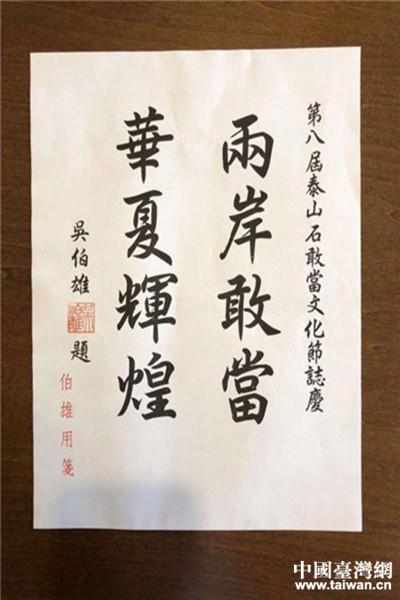 第八屆泰山石敢當文化節誌慶
兩岸敢當
華夏輝煌
吳伯雄題
伯雄用箋
中國臺灣網
www.taiwan.cn